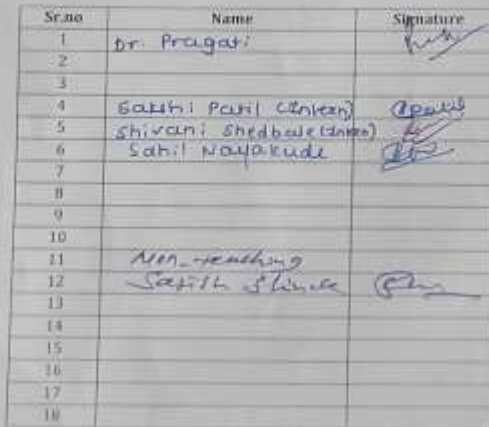 Sr.no Name Signature
1 Dr. Pragati
2
3
4 Sakshi Patil (Intern)
5 Shivani Shedbale (Intern)
6 Sahil Nayakude
7
8
9
10
11 Non-teaching
12 Satish Shinde
13
14
15
16
17
18